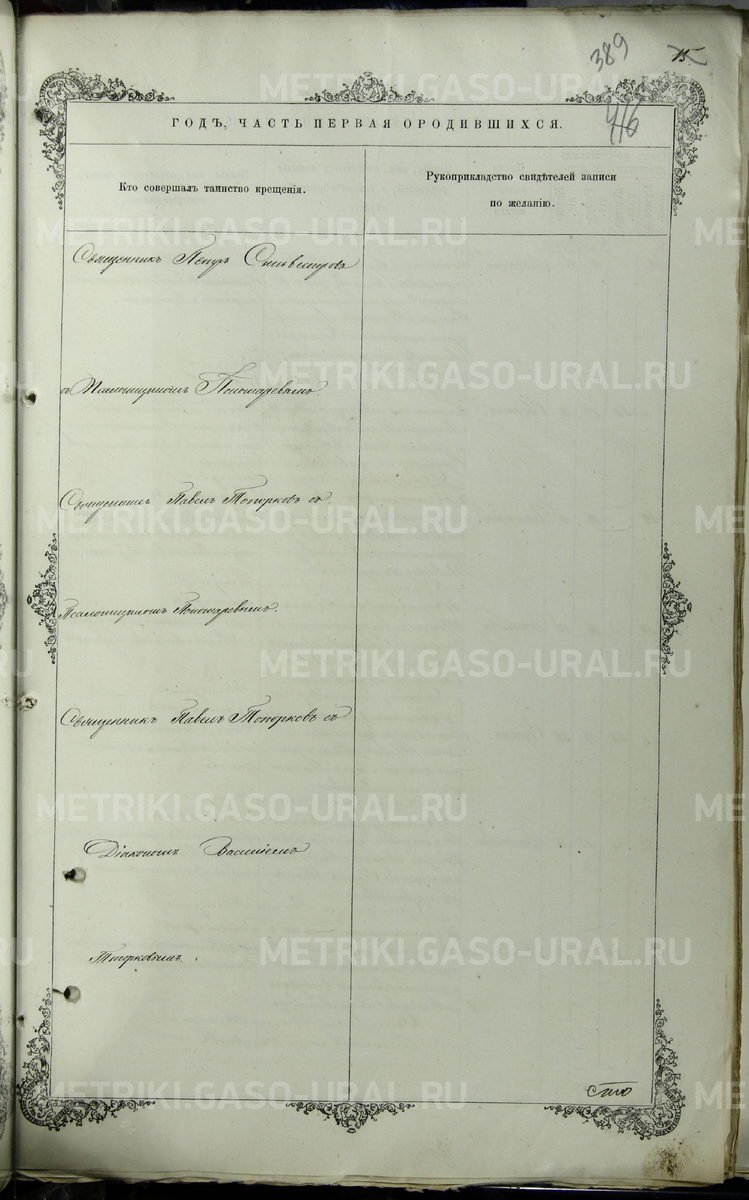 389
15
416
ГОДЪ, ЧАСТЬ ПЕРВАЯ ОРОДИВШИХСЯ.
Кто совершалъ таинство крещенія.
Рукоприкладство свидѣтелей записи
по желанію.
Священникъ Петръ Сильвестровъ
съ Псаломщикомъ Пономаревымъ.
Священникъ Павелъ Топорковъ съ
Псаломщикомъ Пономаревымъ.
Священникъ Павелъ Топорковъ съ
Діакономъ Василіемъ
Топорковымъ.
Сто
METRIKI.GASO-URAL.RU